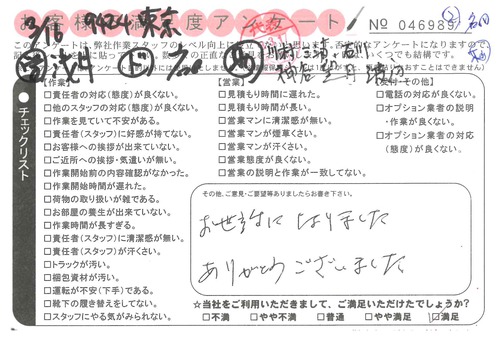 お客様満足度アンケート
№ 046989
2/18 9424 東京
このアンケートは、弊社作業スタッフのレベル向上に
【作業】
□責任者の対応(態度)が良くない。
□他のスタッフの対応(態度)が良くない。
□作業を見ていて不安がある。
□責任者(スタッフ)に好感が持てない。
□お客様への挨拶が出来ていない。
□ご近所への挨拶・気遣いが無い。
□作業開始前の内容確認がなかった。
□作業開始時間が遅れた。
□荷物の取り扱いが雑である。
□お部屋の養生が出来ていない。
□作業時間が長すぎる。
□責任者(スタッフ)に清潔感が無い。
□責任者(スタッフ)が汗くさい。
□トラックが汚い。
□梱包資材が汚い。
□運転が不安(下手)である。
□靴下の履き替えをしてない。
□スタッフにやる気がみられない。
●チェックリスト
【営業】
□見積もり時間に遅れた。
□見積もり時間が長い。
□営業マンに清潔感が無い。
□営業マンが煙草くさい。
□営業マンが汗くさい。
□営業態度が良くない。
□営業の説明と作業が一致してない。
【受付・その他】
□電話の対応が良くない。
□オプション業者の説明・作業が良くない。
□オプション業者の対応(態度)が良くない。
その他、ご意見・ご要望等ありましたらお書き下さい。
お世話になりました
ありがとうございました
☆当社をご利用いただきまして、ご満足いただけたでしょうか?
□不満 □やや不満 □普通 □やや満足 ☑満足